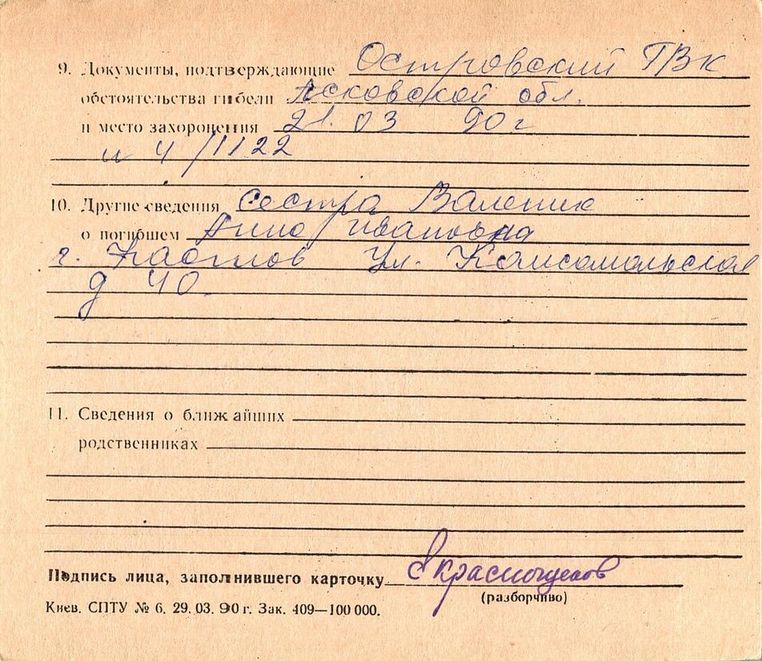 9. Документы, подтверждающие Островский ГВК
обстоятельства гибели Псковской обл.
и место захоронения 21. 03 90г
и 4/1122
10. Другие сведения Сестра
о погибшем Ивановна
г. Ул. Комсомольская
д 40.
11. Сведения о ближайших
родственниках
Подпись лица, заполнившего карточку
(разборчиво)
Киев. СПТУ № 6. 29. 03. 90 г. Зак. 409—100 000.